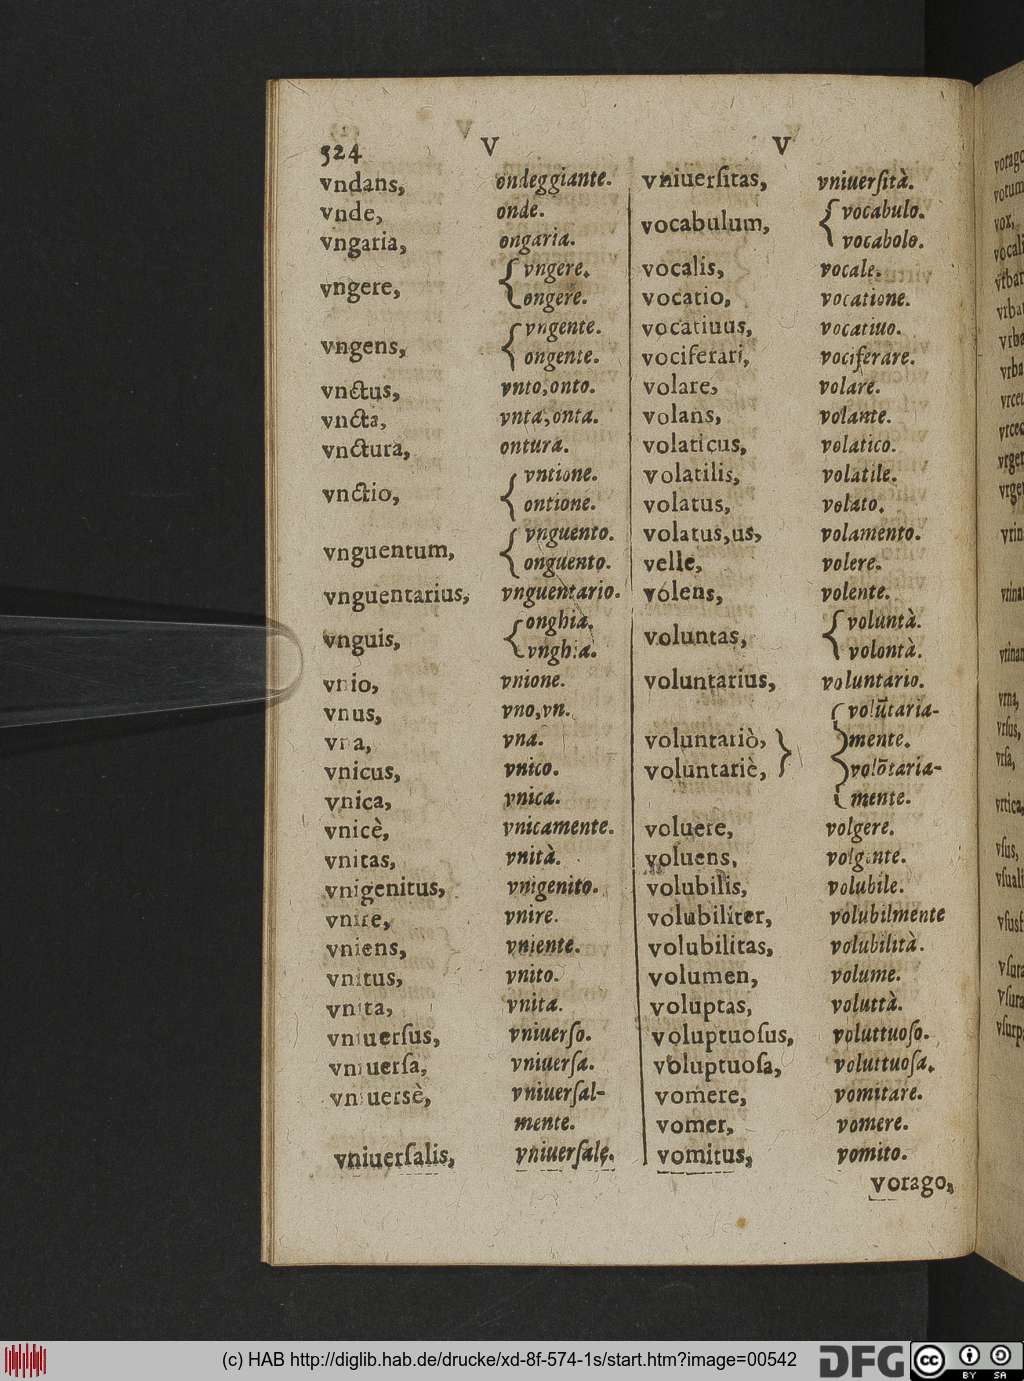 524 V V
vndans, ondeggiante.
vnde, onde.
vngaria, ongaria.
vngere, { vngere.
ongere.
vngens, { vngente.
ongente.
vnctus, vnto, onto.
vncta, vnta, onta.
vnctura, ontura.
vnctio, { vntione.
ontione.
vnguentum, { vnguento.
onguento.
vnguentarius, vnguentario.
vnguis, { onghia.
vnghia.
vnio, vnione.
vnus, vno, vn.
vna, vna.
vnicus, vnico.
vnica, vnica.
vnicè, vnicamente.
vnitas, vnità.
vnigenitus, vnigenito.
vnire, vnire.
vniens, vniente.
vnitus, vnito.
vnita, vnita.
vniuerſus, vniuerſo.
vniuerſa, vniuerſa.
vniuersè, vniuerſal-
mente.
vniuerſalis, vniuerſale.
vniuerſitas, vniuerſità.
vocabulum, { vocabulo.
vocabolo.
vocalis, vocale.
vocatio, vocatione.
vocatiuus, vocatiuo.
vociferari, vociferare.
volare, volare.
volans, volante.
volaticus, volatico.
volatilis, volatile.
volatus, volato.
volatus, us, volamento.
velle, volere.
volens, volente.
voluntas, { voluntà.
volontà.
voluntarius, voluntario.
{ volūtaria-
voluntariò, } mente.
voluntariè, } volōtaria-
mente.
voluere, volgere.
voluens, volgente.
volubilis, volubile.
volubiliter, volubilmente
volubilitas, volubilità.
volumen, volume.
voluptas, voluttà.
voluptuoſus, voluttuoſo.
voluptuoſa, voluttuoſa.
vomere, vomitare.
vomer, vomere.
vomitus, vomito.
vorago,
(c) HAB http://diglib.hab.de/drucke/xd-8f-574-1s/start.htm?image=00542
DFG
cc BY SA